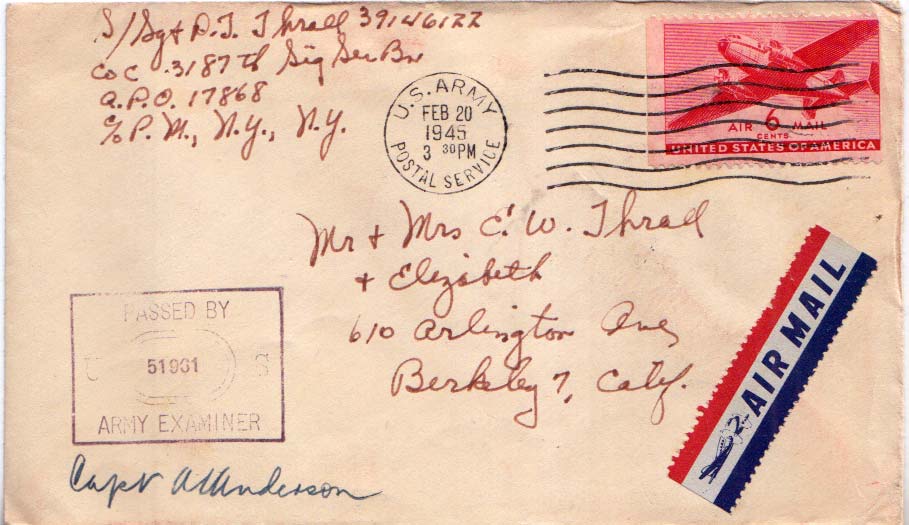 S/Sgt D. T. Thrall 39146122
Co C 3187th Sig Ser Bn
A.P.O. 17868
c/o P.M., N.Y., N.Y.
U.S. ARMY
FEB 20
1945
3 30 PM
POSTAL SERVICE
AIR 6 MAIL
CENTS
UNITED STATES OF AMERICA
Mr + Mrs E. W. Thrall
+ Elizabeth
610 Arlington Ave
Berkeley 7, Calif.
PASSED BY
U 51961 S
ARMY EXAMINER
Capt Anderson
AIR MAIL